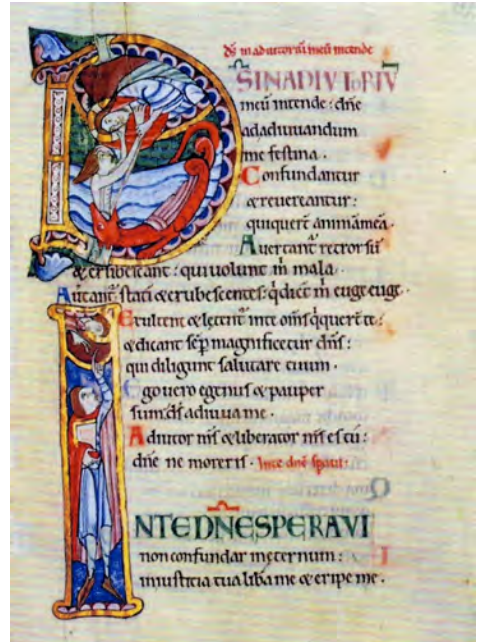 ds in adiutoriũ meũ intende
DS IN ADIVTORIV̄
meũ intende: dñe
ad adiuuandum
me festina.
Confundantur
& reuereantur:
qui querĩt animã meã.
Auertant̃ retrorsũ
& erubescant: qui uolunt m̃ mala.
Auertant̃ stati & erubescentes: q̇ dicĩt m̃ euge euge.
Exultent & letent̃ in te om̃s q̇ querĩt te:
& dicant sẽp magnificetur dñs:
qui diligunt salutare tuum.
Ego uero egenus & pauper
sum: ds̃ adiuua me.
Adiutor ms̃ & liberator ms̃ es tu:
dñe ne moreris. In te dñe spaui:
IN TE DÑE SPERAVI
non confundar in eternum:
in iusticia tua liba me & eripe me.